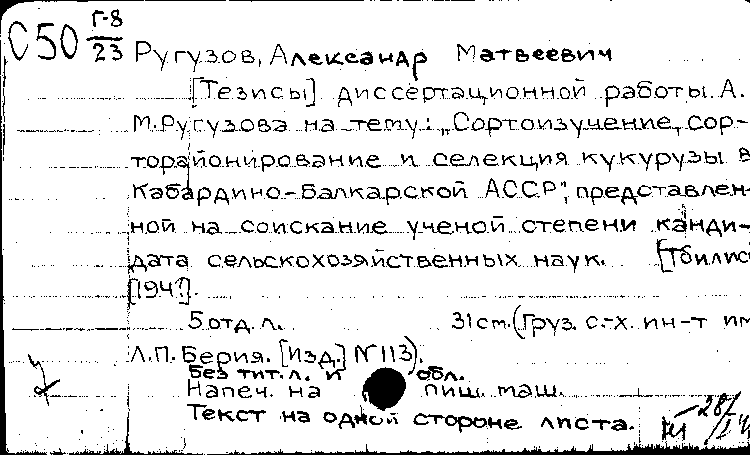 С50 Г-8/23
Ругузов, Александр Матвеевич
[Тезисы] диссертационной работы А.
М.Ругузова на тему: „Сортоизучение, сор-
торайонирование и селекция кукурузы в
Кабардино-Балкарской АССР", представлен-
ной на соискание ученой степени канди-
дата сельскохозяйственных наук. [Тбилиси
[194?].
5 отд. л. 31 cm. (Груз. с.-х. ин-т им
Л.П. Берия. [Изд.] № 113).
Без тит. л. и обл.
Напеч. на пиш. маш.
Текст на одной стороне листа.